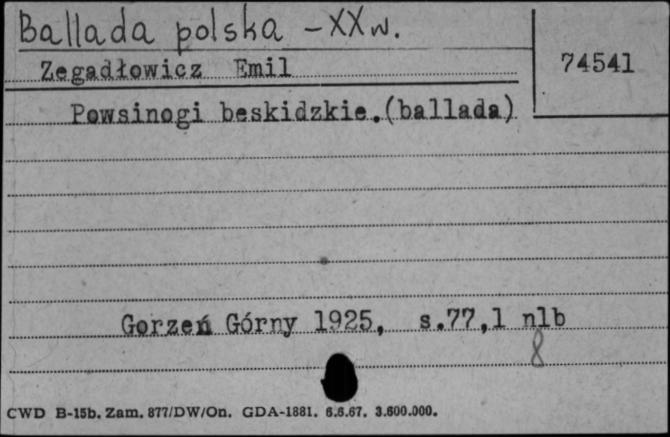 Ballada polska - XX w.
Zegadłowicz Emil
74541
Powsinogi beskidzkie.(ballada)
Gorzeń Górny 1925, s.77,1 nlb
8
CWD B-15b. Zam. 877/DW/On. GDA-1881. 6.6.67. 3.600.000.